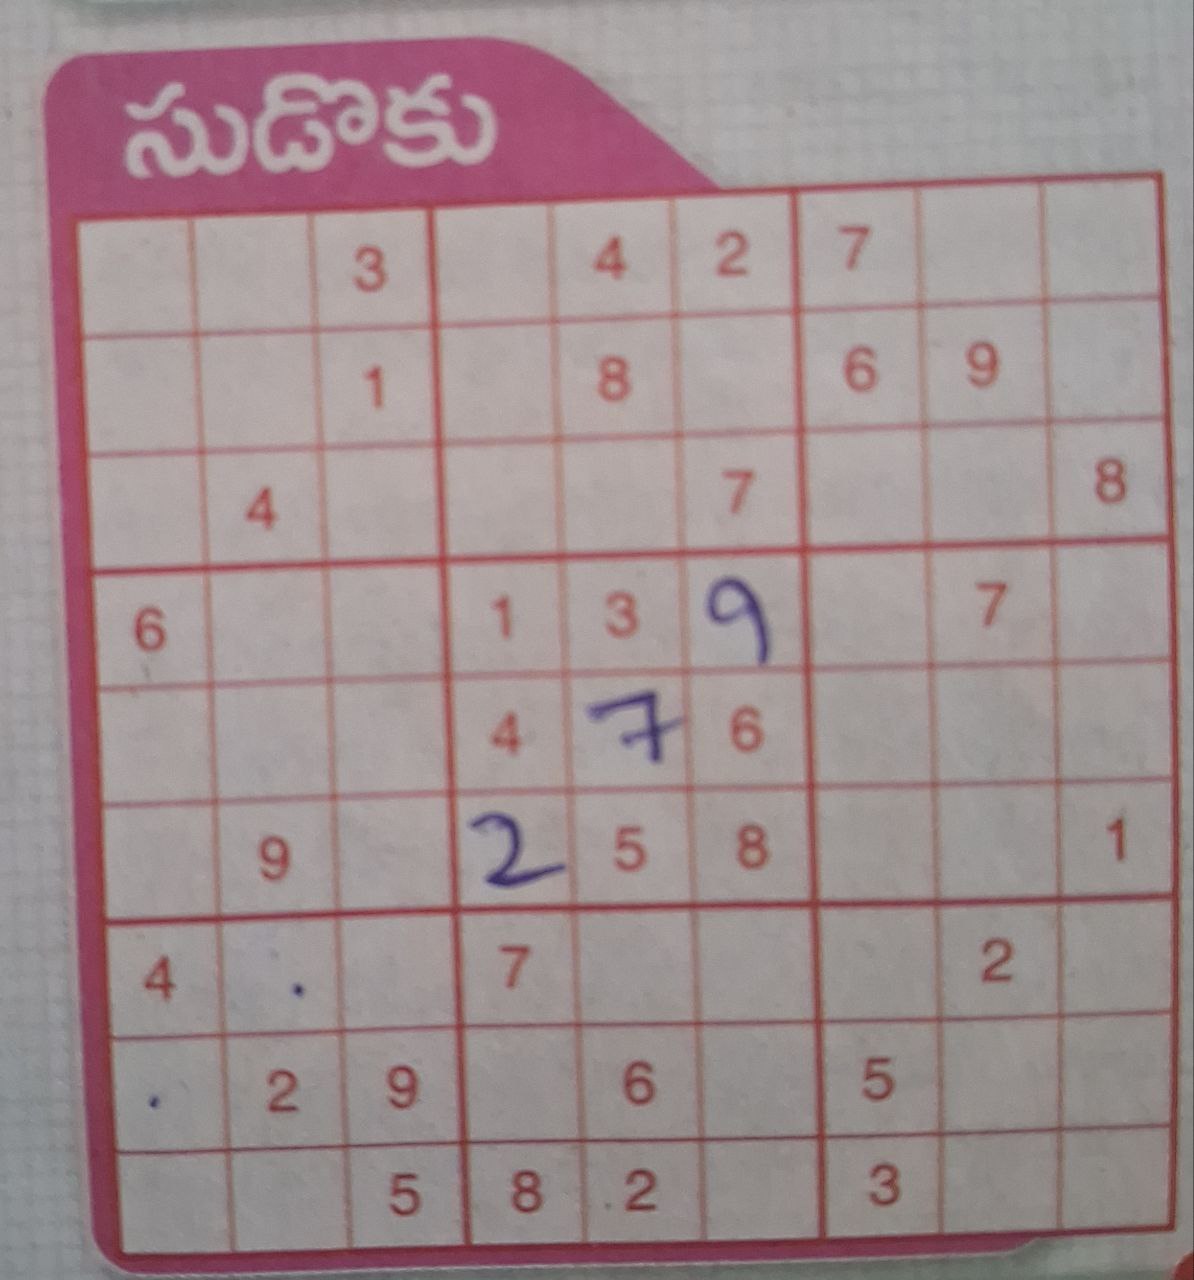 సుడొకు
3 4 2 7
1 8 6 9
4 7 8
6 1 3 9 7
4 7 6
9 2 5 8 1
4 7 2
2 9 6 5
5 8 2 3